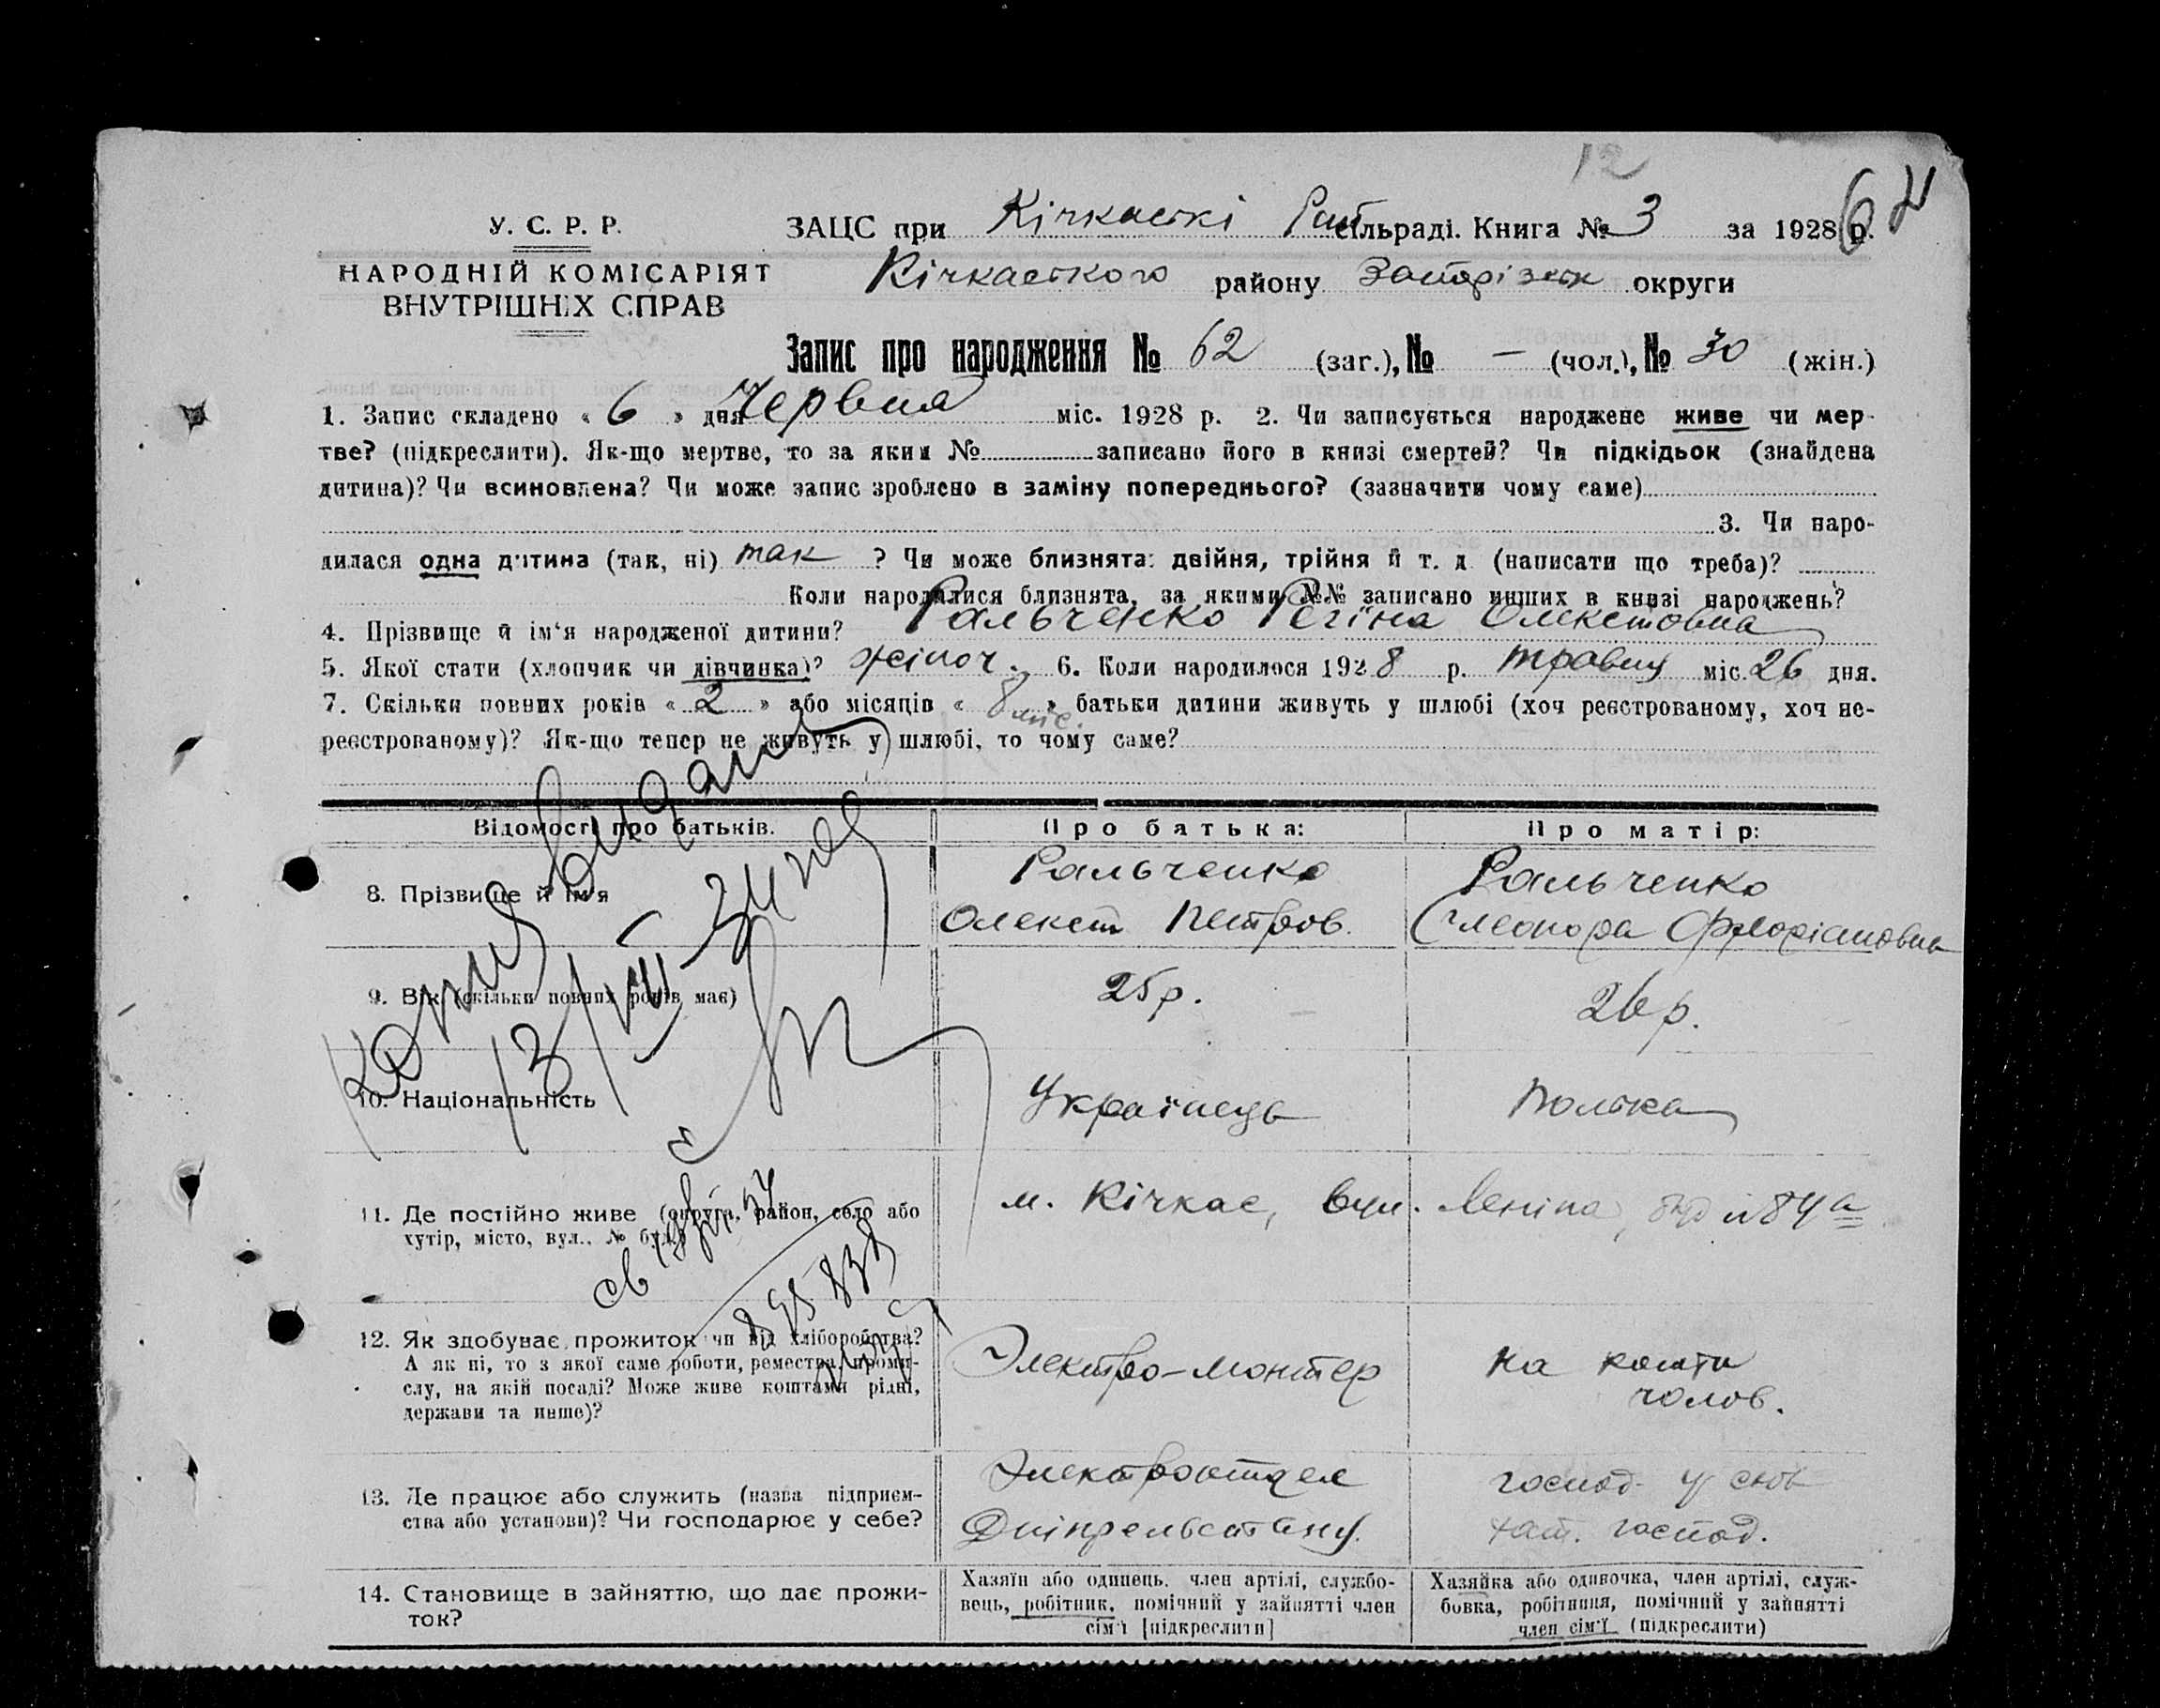 12
У. С. Р. Р.
НАРОДНІЙ КОМІСАРІЯТ
ВНУТРІШНІХ СПРАВ
ЗАЦС при Кічкаскі сільраді. Книга № 3 за 1928 р.
Кічкаського району Запорізьк округи
Запис про народження № 62 (заг.), № — (чол.), № 30 (жін.)
1. Запис складено « 6 » дня Червня міс. 1928 р. 2. Чи записується народжене живе чи мер-
тве? (підкреслити). Як-що мертве, то за яким № записано його в книзі смертей? Чи підкідьок (знайдена
дитина)? Чи всиновлена? Чи може запис зроблено в заміну попереднього? (зазначити чому саме)
3. Чи наро-
дилася одна дитина (так, ні) так ? Чи може близнята: двійня, трійня й т. д (написати що треба)?
Коли народилися близнята, за якими №№ записано инших в книзі народжень?
4. Прізвище й ім'я народженої дитини? Ральченко Регіна Олексіовна
5. Якої стати (хлопчик чи дівчинка)? жіноч. 6. Коли народилося 1928 р. травня міс. 26 дня.
7. Скільки повних років « 2 » або місяців « 8 міс. » батьки дитини живуть у шлюбі (хоч реєстрованому, хоч не-
реєстрованому)? Як-що тепер не живуть у шлюбі, то чому саме?
Відомості про батьків. Про батька: Про матір:
8. Прізвище й ім'я
Ральченко
Олексій Петров.
Ральченко
Элеонора Флоріановна
9. Вік (скільки повних років має) 25 р. 26 р.
10. Національність Українець Полька
11. Де постійно живе (округа, район, село або
хутір, місто, вул., № буд.)
м. Кічкас, вул. Леніна, буд № 84а
12. Як здобуває прожиток чи від хліборобства?
А як ні, то з якої саме роботи, ремества, проми-
слу, на якій посаді? Може живе коштами рідні,
держави та инше)?
Электро-монтер
на кошти
чолов.
13. Де працює або служить (назва підприєм-
ства або установи)? Чи господарює у себе?
Электроотдел
Дніпрельстану.
господ. у свої
хат. господ.
14. Становище в зайняттю, що дає прожи-
ток?
Хазяїн або одинець, член артілі, службо-
вець, робітник, помічний у зайнятті член
сім'ї [підкреслити]
Хазяйка або одиночка, член артілі, служ-
бовка, робітниця, помічний у зайнятті
член сім'ї (підкреслити)
Копия выдана